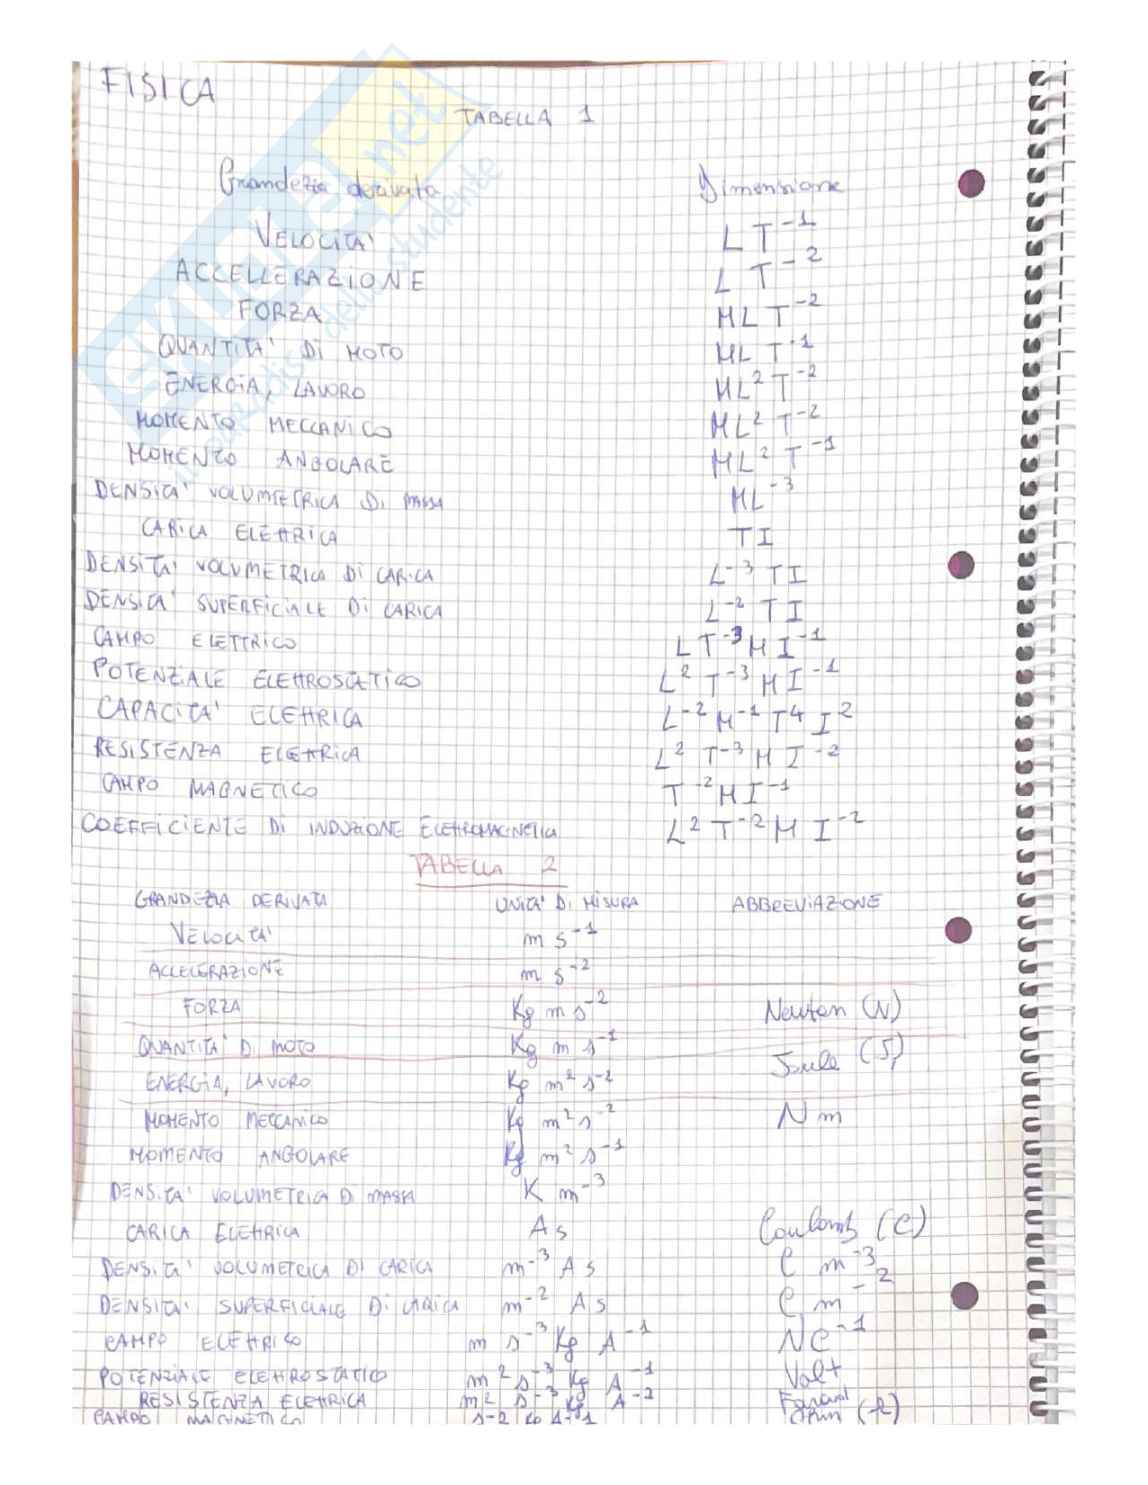 FISICA
TABELLA 1
Grandezza derivata Dimensione
VELOCITA' L T⁻¹
ACCELLERAZIONE L T⁻²
FORZA M L T⁻²
QUANTITA' DI MOTO M L T⁻¹
ENERGIA, LAVORO M L² T⁻²
MOMENTO MECCANICO M L² T⁻²
MOMENTO ANGOLARE M L² T⁻¹
DENSITA' VOLUMETRICA DI MASSA M L⁻³
CARICA ELETTRICA T I
DENSITA' VOLUMETRICA DI CARICA L⁻³ T I
DENSITA' SUPERFICIALE DI CARICA L⁻² T I
CAMPO ELETTRICO L T⁻³ M I⁻¹
POTENZIALE ELETTROSTATICO L² T⁻³ M I⁻¹
CAPACITA' ELETTRICA L⁻² M⁻¹ T⁴ I²
RESISTENZA ELETTRICA L² T⁻³ M I⁻²
CAMPO MAGNETICO T⁻² M I⁻¹
COEFFICIENTE DI INDUZIONE ELETTROMAGNETICA L² T⁻² M I⁻²
TABELLA 2
GRANDEZZA DERIVATA UNITA' DI MISURA ABBREVIAZIONE
VELOCITA' m s⁻¹
ACCELERAZIONE m s⁻²
FORZA Kg m s⁻² Newton (N)
QUANTITA' DI MOTO Kg m s⁻¹
ENERGIA, LAVORO Kg m² s⁻² Joule (J)
MOMENTO MECCANICO Kg m² s⁻² N m
MOMENTO ANGOLARE Kg m² s⁻¹
DENSITA' VOLUMETRICA DI MASSA K m⁻³
CARICA ELETTRICA A s Coulomb (C)
DENSITA' VOLUMETRICA DI CARICA m⁻³ A s C m⁻³
DENSITA' SUPERFICIALE DI CARICA m⁻² A s C m⁻²
CAMPO ELETTRICO m s⁻³ Kg A⁻¹ N C⁻¹
POTENZIALE ELETTROSTATICO m² s⁻³ Kg A⁻¹ Volt
RESISTENZA ELETTRICA m² s⁻³ Kg A⁻² Farad
CAMPO MAGNETICO s⁻² Kg A⁻¹ Ohm (Ω)